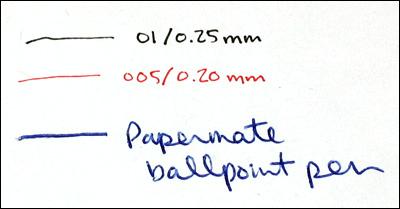 01/0.25 mm
005/0.20 mm
Papermate
ballpoint pen